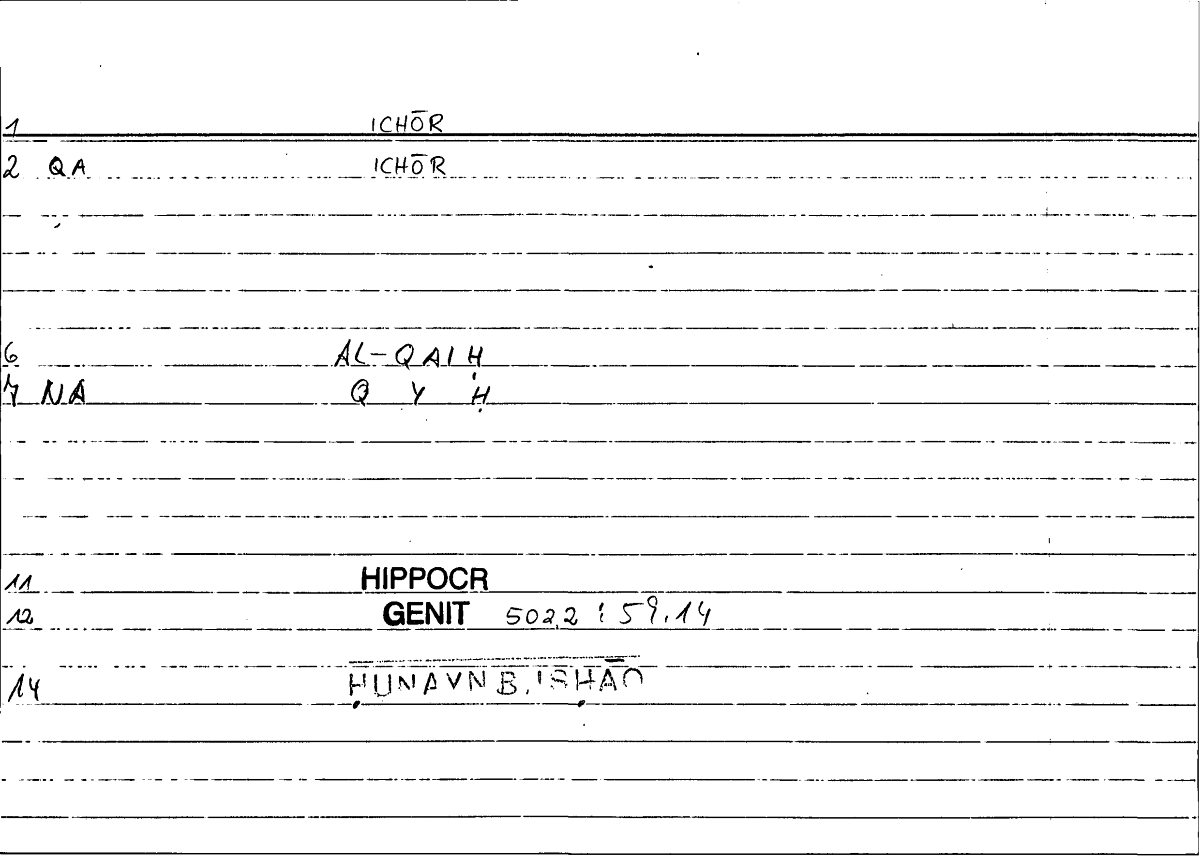 1 ICHŌR
2 QA ICHŌR
6 AL-QAIḤ
7 NA Q Y Ḥ
11 HIPPOCR
12 GENIT 502,2 : 59,14
14 ḤUNAYN B. ISḤĀQ